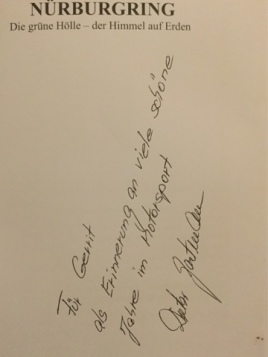 NÜRBURGRING
Die grüne Hölle – der Himmel auf Erden
Für Gerrit
als Erinnerung an viele schöne
Jahre im Motorsport